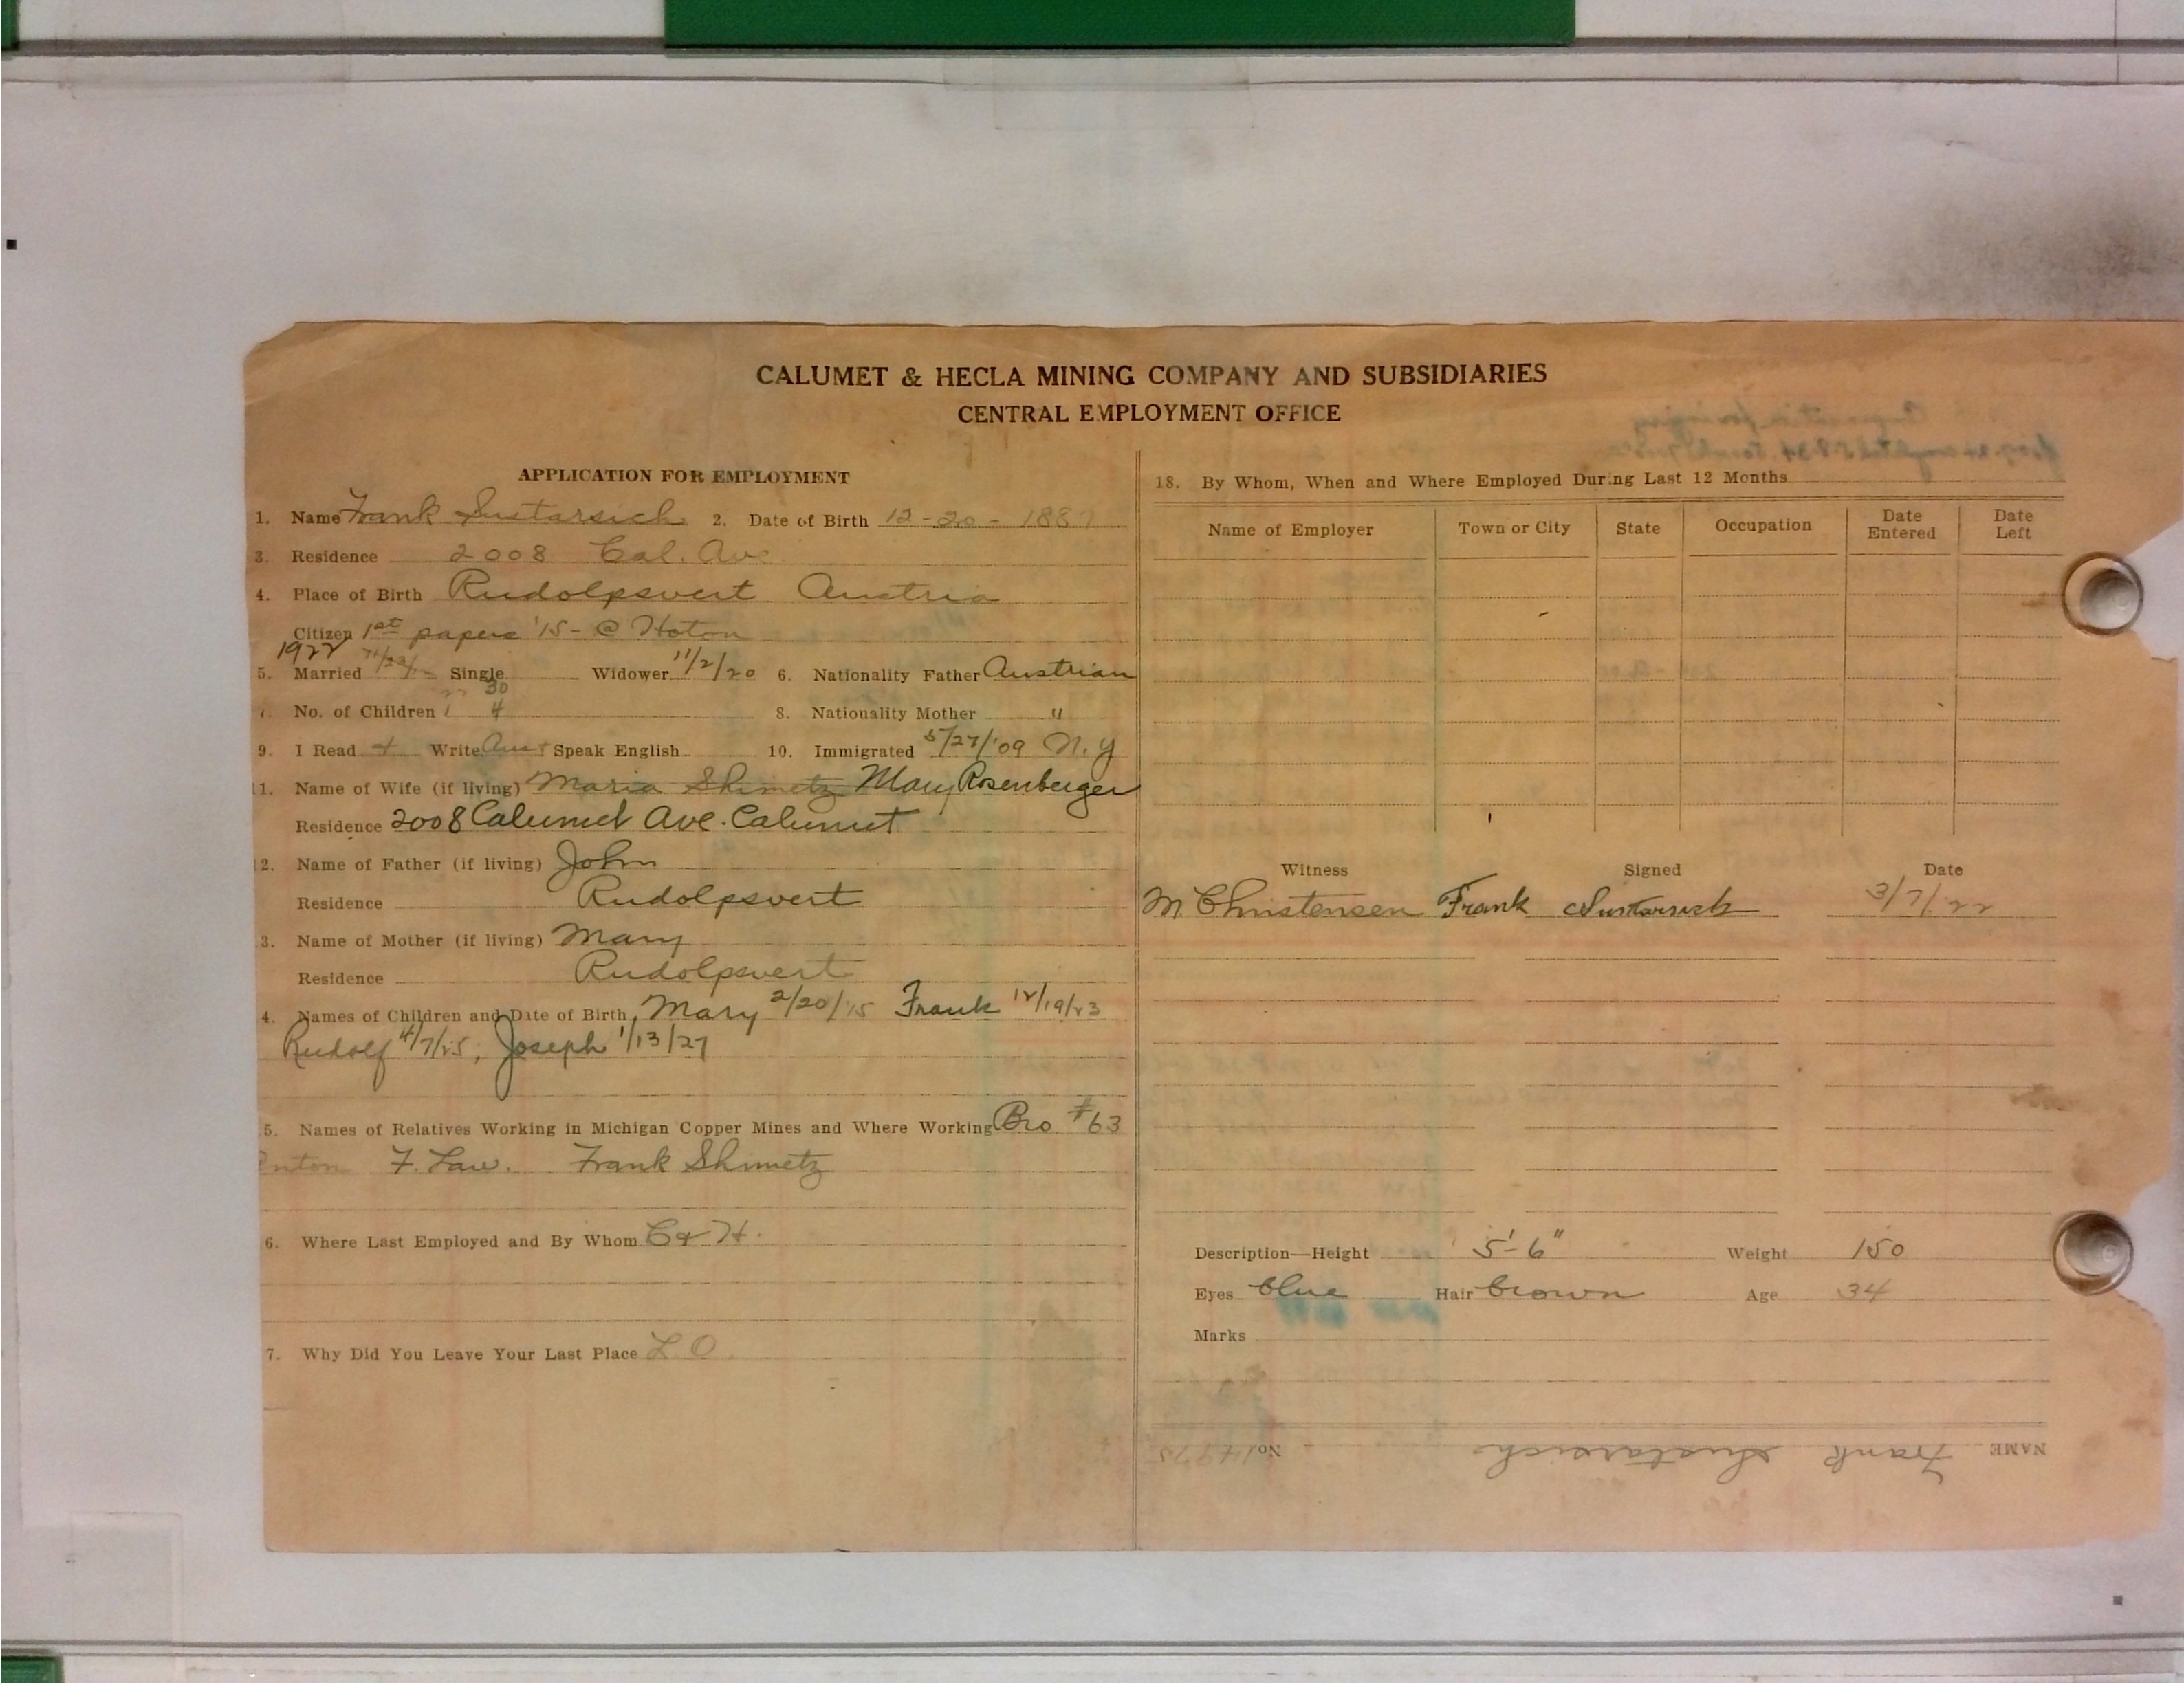 CALUMET & HECLA MINING COMPANY AND SUBSIDIARIES
CENTRAL EMPLOYMENT OFFICE
APPLICATION FOR EMPLOYMENT
1. Name Frank Sustarsich 2. Date of Birth 12-20-1887
3. Residence 2008 Cal. Ave
4. Place of Birth Rudolpsvert Austria
Citizen 1st papers '15- @ Hoton
1922
5. Married Single Widower 11/2/20 6. Nationality Father Austrian
30
7. No. of Children 1 4 8. Nationality Mother "
9. I Read + Write Aus + Speak English 10. Immigrated 5/27/'09 N.Y
11. Name of Wife (if living) Maria Shimetz Mary Rosenberger
Residence 2008 Calumet Ave. Calumet
12. Name of Father (if living) John
Residence Rudolpsvert
3. Name of Mother (if living) Mary
Residence Rudolpsvert
4. Names of Children and Date of Birth Mary 2/20/15 Frank 12/19/23
Rudolf 4/7/25, Joseph 1/13/27
5. Names of Relatives Working in Michigan Copper Mines and Where Working Bro #63
nton F. Law. Frank Shimetz
6. Where Last Employed and By Whom C & H.
7. Why Did You Leave Your Last Place L O
18. By Whom, When and Where Employed During Last 12 Months
Name of Employer Town or City State Occupation Date Entered Date Left
Witness Signed Date
M. Christensen Frank Sustarsich 3/7/22
Description—Height 5'-6" Weight 150
Eyes blue Hair brown Age 34
Marks
NAME Frank Sustarsich No.